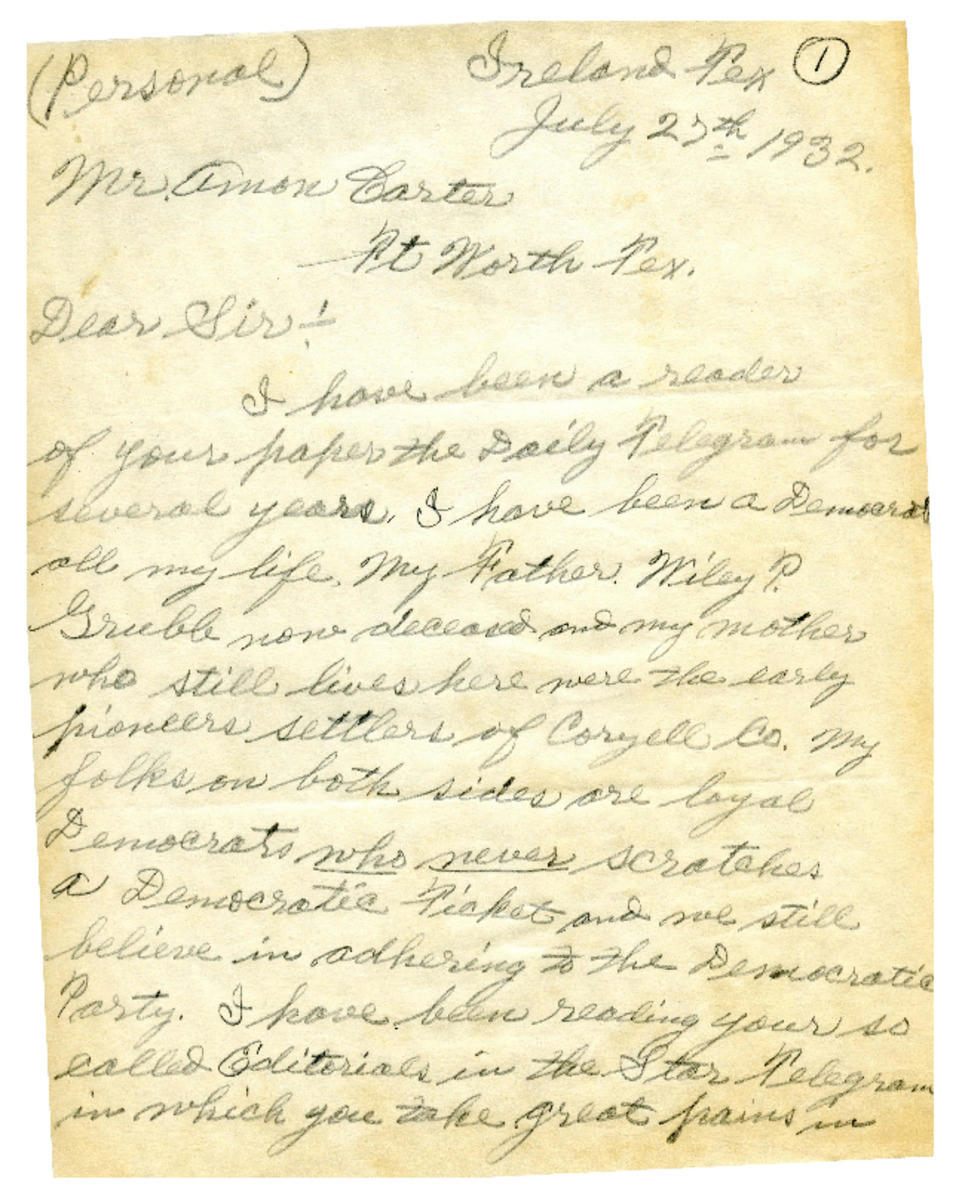 (Personal) Ireland Tex 1
July 27th 1932.
Mr. Amon Carter
Ft Worth Tex.
Dear Sir:-
I have been a reader
of your paper the Daily Telegram for
several years. I have been a Democrat
all my life. My Father. Wiley P.
Gruble now deceased and my mother
who still lives here were the early
pioneers settlers of Coryell Co. My
folks on both sides are loyal
Democrats who never scratches
a Democratic Ticket and we still
believe in adhering to the Democratic
Party. I have been reading your so
called Editorials in the Star Telegram
in which you take great pains in